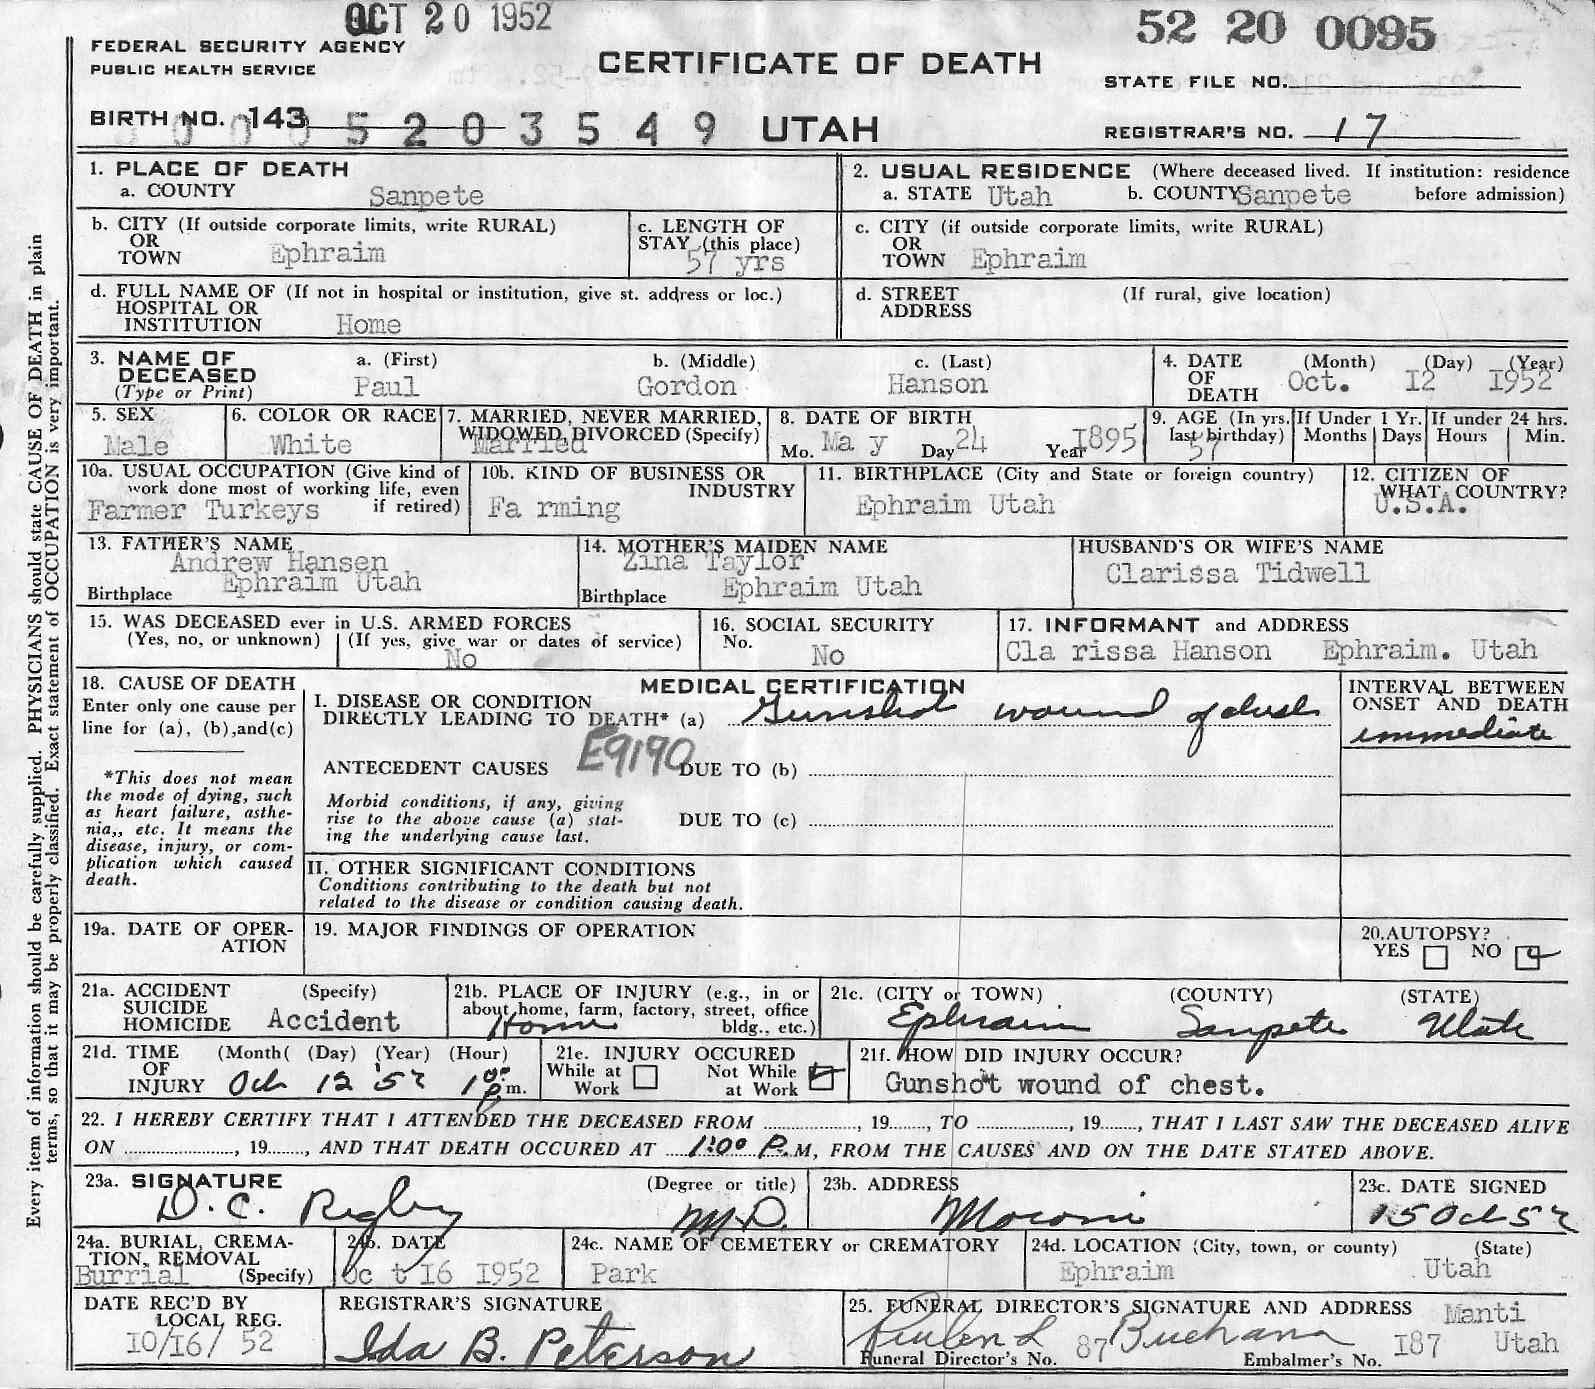 OCT 20 1952
52 20 0095
FEDERAL SECURITY AGENCY
PUBLIC HEALTH SERVICE
CERTIFICATE OF DEATH
STATE FILE NO.
BIRTH NO. 143
5 2 0 3 5 4 9 UTAH
REGISTRAR'S NO. 17
1. PLACE OF DEATH
a. COUNTY Sanpete
2. USUAL RESIDENCE (Where deceased lived. If institution: residence before admission)
a. STATE Utah b. COUNTY Sanpete
b. CITY (If outside corporate limits, write RURAL)
OR
TOWN Ephraim
c. LENGTH OF
STAY (this place)
57 yrs
c. CITY (if outside corporate limits, write RURAL)
OR
TOWN Ephraim
d. FULL NAME OF (If not in hospital or institution, give st. address or loc.)
HOSPITAL OR
INSTITUTION Home
d. STREET (If rural, give location)
ADDRESS
3. NAME OF
DECEASED
(Type or Print)
a. (First) b. (Middle) c. (Last)
Paul Gordon Hanson
4. DATE (Month) (Day) (Year)
OF
DEATH Oct. I2 I952
5. SEX
Male
6. COLOR OR RACE
White
7. MARRIED, NEVER MARRIED,
WIDOWED, DIVORCED (Specify)
Married
8. DATE OF BIRTH
Mo. Ma y Day 24 Year I895
9. AGE (In yrs.
last birthday)
57
If Under 1 Yr.
Months Days
If under 24 hrs.
Hours Min.
10a. USUAL OCCUPATION (Give kind of
work done most of working life, even
if retired)
Farmer Turkeys
10b. KIND OF BUSINESS OR
INDUSTRY
Fa rming
11. BIRTHPLACE (City and State or foreign country)
Ephraim Utah
12. CITIZEN OF
WHAT COUNTRY?
U.S.A.
13. FATHER'S NAME
Andrew Hansen
Birthplace Ephraim Utah
14. MOTHER'S MAIDEN NAME
Zina Taylor
Birthplace Ephraim Utah
HUSBAND'S OR WIFE'S NAME
Clarissa Tidwell
15. WAS DECEASED ever in U.S. ARMED FORCES
(Yes, no, or unknown) (If yes, give war or dates of service)
No
16. SOCIAL SECURITY
No.
No
17. INFORMANT and ADDRESS
Cla rissa Hanson Ephraim. Utah
18. CAUSE OF DEATH
Enter only one cause per
line for (a), (b),and(c)
*This does not mean
the mode of dying, such
as heart failure, asthe-
nia,, etc. It means the
disease, injury, or com-
plication which caused
death.
MEDICAL CERTIFICATION
I. DISEASE OR CONDITION
DIRECTLY LEADING TO DEATH* (a) Gunshot wound of chest
E9190
ANTECEDENT CAUSES DUE TO (b)
Morbid conditions, if any, giving
rise to the above cause (a) stat-
ing the underlying cause last.
DUE TO (c)
II. OTHER SIGNIFICANT CONDITIONS
Conditions contributing to the death but not
related to the disease or condition causing death.
INTERVAL BETWEEN
ONSET AND DEATH
immediate
19a. DATE OF OPER-
ATION
19. MAJOR FINDINGS OF OPERATION
20.AUTOPSY?
YES NO
21a. ACCIDENT (Specify)
SUICIDE
HOMICIDE Accident
21b. PLACE OF INJURY (e.g., in or
about home, farm, factory, street, office
bldg., etc.)
Home
21c. (CITY or TOWN) (COUNTY) (STATE)
Ephraim Sanpete Utah
21d. TIME (Month( (Day) (Year) (Hour)
OF
INJURY Oct 12 '52 1 00 p m.
21e. INJURY OCCURED
While at Work Not While at Work
21f. HOW DID INJURY OCCUR?
Gunshot wound of chest.
22. I HEREBY CERTIFY THAT I ATTENDED THE DECEASED FROM , 19 , TO , 19 , THAT I LAST SAW THE DECEASED ALIVE
ON , 19 , AND THAT DEATH OCCURED AT 1:00 P.M, FROM THE CAUSES AND ON THE DATE STATED ABOVE.
23a. SIGNATURE (Degree or title)
D. C. Rigby M.D.
23b. ADDRESS
Moroni
23c. DATE SIGNED
15 Oct 52
24a. BURIAL, CREMA-
TION, REMOVAL
Burrial (Specify)
24b. DATE
Oc t I6 I952
24c. NAME OF CEMETERY or CREMATORY
Park
24d. LOCATION (City, town, or county) (State)
Ephraim Utah
DATE REC'D BY
LOCAL REG.
I0/I6/ 52
REGISTRAR'S SIGNATURE
Ida B. Peterson
25. FUNERAL DIRECTOR'S SIGNATURE AND ADDRESS Manti
Utah
Funeral Director's No. 87
Embalmer's No. I87
Every item of information should be carefully supplied. PHYSICIANS should state CAUSE OF DEATH in plain
terms, so that it may be properly classified. Exact statement of OCCUPATION is very important.